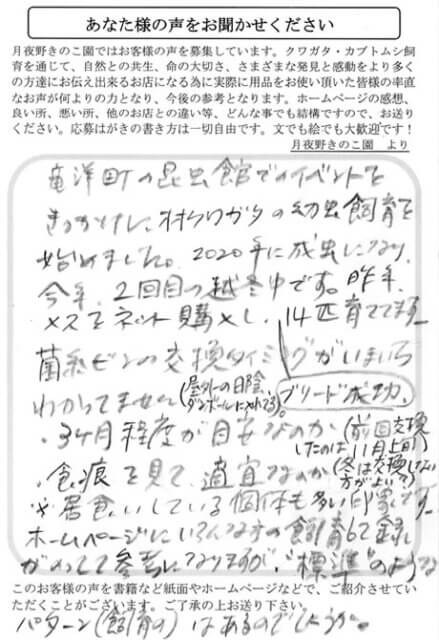 あなた様の声をお聞かせください
月夜野きのこ園ではお客様の声を募集しています。クワガタ・カブトムシ飼
育を通じて、自然との共生、命の大切さ、さまざまな発見と感動をより多く
の方達にお伝え出来るお店になる為に実際に用品をお使い頂いた皆様の率直
なお声が何よりの力となり、今後の参考となります。ホームページの感想、
良い所、悪い所、他のお店との違い等、どんな事でも結構ですので、お送り
ください。応募はがきの書き方は一切自由です。文でも絵でも大歓迎です！
月夜野きのこ園　より
竜洋町の昆虫館でのイベントを
きっかけに、オオクワガタの幼虫飼育を
始めました。2020年に成虫になり、
今年、2回目の越冬中です。昨年、
メスをネット購入し、14匹育ててます。
ブリード成功。
菌糸ビンの交換タイミングがいまいち
わかってません。(屋外の日陰、
ダンボールに入れてる)
・3ヶ月程度が目安なのか(前回交換
したのは、11月上旬)
・食痕を見て、適宜なのか(冬は交換しない
方がよい?)
※居食いしている個体も多い印象です。
ホームページにいろんな方の飼育記録
がのってて参考になりますが、"標準"のような
パターン(飼育の)はあるのでしょうか。
このお客様の声を書籍など紙面やホームページなどで、ご紹介させてい
ただくことがございます。ご了承の上お送り下さい。